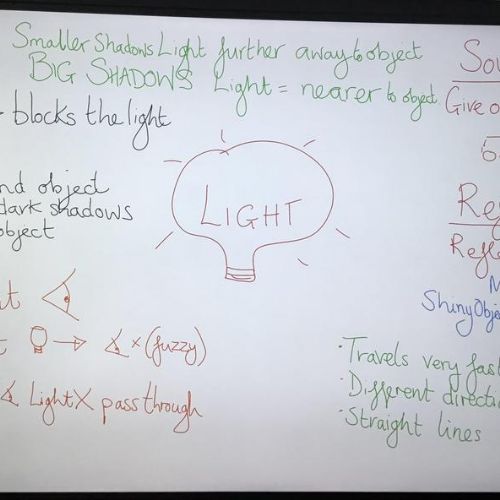 Smaller Shadows Light further away to object
BIG SHADOWS Light = nearer to object
blocks the light
object
dark shadows
object
(fuzzy)
Light X pass through
LIGHT
Give o
Shiny Objec
Travels very fas
Different directi
Straight lines